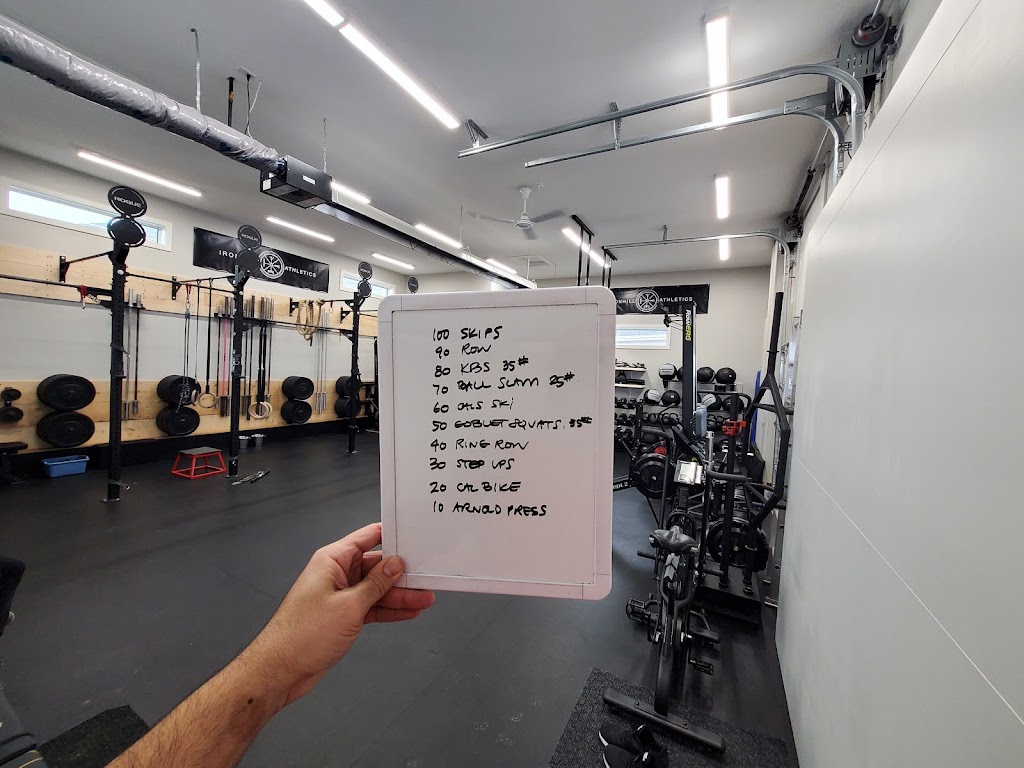 ROGUE
IRON
ATHLETICS
IRONHILL ATHLETICS
100 SKIPS
90 ROW
80 KBS 35#
70 BALL SLAM 25#
60 CALS SKI
50 GOBLET SQUATS. 35#
40 RING ROW
30 STEP UPS
20 CAL BIKE
10 ARNOLD PRESS